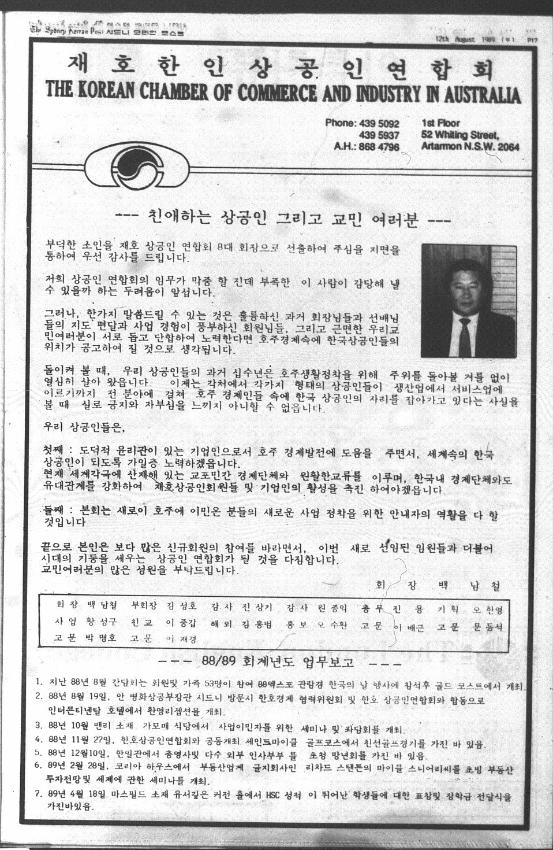 The Sydney Korean Post 시드니 코리안 포스트
12th August 1989 P17
재호한인상공인연합회
THE KOREAN CHAMBER OF COMMERCE AND INDUSTRY IN AUSTRALIA
Phone: 439 5092
439 5937
A.H.: 868 4796
1st Floor
52 Whiting Street,
Artarmon N.S.W. 2064
--- 친애하는 상공인 그리고 교민 여러분 ---
부덕한 소인을 재호 상공인 연합회 8대 회장으로 선출하여 주심을 지면을
통하여 우선 감사를 드립니다.
저희 상공인 연합회의 임무가 막중 할 진데 부족한 이 사람이 감당해 낼
수 있을까 하는 두려움이 앞섭니다.
그러나, 한가지 말씀드릴 수 있는 것은 훌륭하신 과거 회장님들과 선배님
들의 지도 편달과 사업 경험이 풍부하신 회원님들, 그리고 근면한 우리교
민여러분이 서로 돕고 단합하여 노력한다면 호주경제속에 한국상공인들의
위치가 공고하여 질 것으로 생각됩니다.
돌이켜 볼 때, 우리 상공인들의 과거 십수년은 호주생활정착을 위해 주위를 돌아볼 겨를 없이
열심히 살아 왔읍니다. 이제는 각처에서 각가지 형태의 상공인들이 생산업에서 서비스업에
이르기까지 전 분야에 걸쳐 호주 경제인들 속에 한국 상공인의 자리를 잡아가고 있다는 사실을
볼 때 실로 긍지와 자부심을 느끼지 아니할 수 없읍니다.
우리 상공인들은,
첫째 : 도덕적 윤리관이 있는 기업인으로서 호주 경제발전에 도움을 주면서, 세계속의 한국
상공인이 되도록 가일층 노력하겠읍니다.
현재 세계각국에 산재해 있는 교포민간 경제단체와 원활한교류를 이루며, 한국내 경제단체와도
유대관계를 강화하여 재호상공인회원들 및 기업인의 활성을 촉진 하여야겠읍니다.
둘째 : 본회는 새로이 호주에 이민온 분들의 새로운 사업 정착을 위한 안내자의 역활을 다 할
것입니다
끝으로 본인은 보다 많은 신규회원의 참여를 바라면서, 이번 새로 선임된 임원들과 더불어
시대의 기둥을 세우는 상공인 연합회가 될 것을 다짐합니다.
교민여러분의 많은 성원을 부탁드립니다.
회 장 백 남 철
회 장 백 남철 부회장 김 성호 감 사 진 상기 감 사 원 총 무 진 용 기 획 오 한영
사 업 황 성구 친 교 이 중갑 해 외 김 홍범 홍 보 오 수환 고 문 이 배근 고 문 문 동석
고 문 박 명호 고 문 이 재경
--- 88/89 회계년도 업무보고 ---
1. 지난 88년 8월 간담회는 회원및 가족 53명이 참여 88엑스포 관람겸 한국의 날 행사에 참석후 골드 코스트에서 개최.
2. 88년 8월 19일, 안 병화상공부장관 시드니 방문시 한호경제 협력위원회 및 한호 상공인연합회와 합동으로
인터콘티넨탈 호텔에서 환영리셉션을 개최.
3. 88년 10월 맨리 소재 가모메 식당에서 사업이민자를 위한 세미나 및 좌담회를 개최.
4. 88년 11월 27일, 한호상공인연합회와 공동개최 세인트마이클 골프코스에서 친선골프경기를 가진 바 있음.
5. 88년 12월10일, 한일관에서 총영사및 다수 외부 인사부부 를 초청 망년회를 가진 바 있음.
6. 89년 2월 28일, 코리아 하우스에서 부동산업계 굴지회사인 리차드 스탠톤의 마이클 스니어리씨를 초빙 부동산
투자전망및 세제에 관한 세미나를 개최.
7. 89년 4월 18일 마스필드 소재 유서깊은 커전 홀에서 HSC 성적 이 뛰어난 학생들에 대한 표창및 장학금 전달식을
가진바있음.